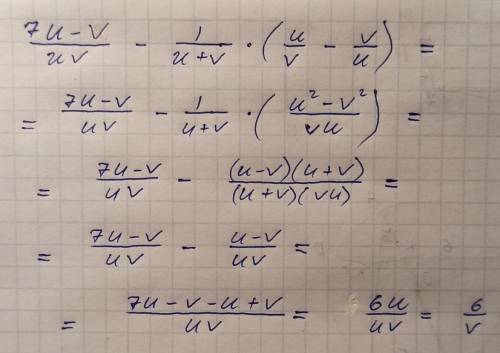 (7u-v)/(uv) - 1/(u+v) · (u/v - v/u) =
= (7u-v)/(uv) - 1/(u+v) · ((u²-v²)/(vu)) =
= (7u-v)/(uv) - ((u-v)(u+v))/((u+v)(vu)) =
= (7u-v)/(uv) - (u-v)/(uv) =
= (7u-v-u+v)/(uv) = 6u/(uv) = 6/v